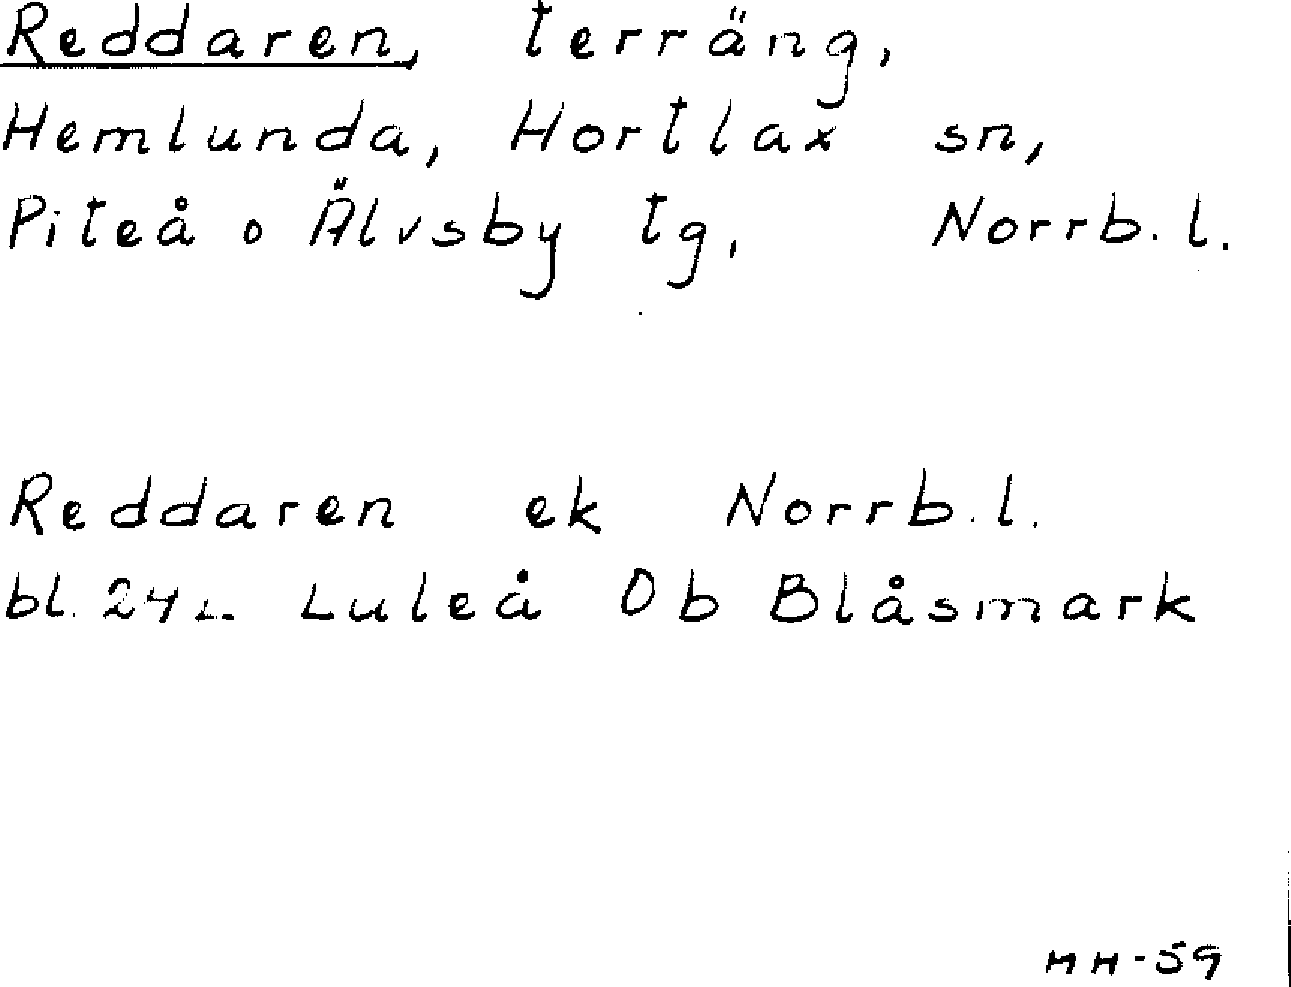 Reddaren, terräng,
Hemlunda, Hortlax sn,
Piteå o Älvsby tg, Norrb. l.
Reddaren ek Norrb. l.
bl. 24L Luleå 0b Blåsmark
HH-59